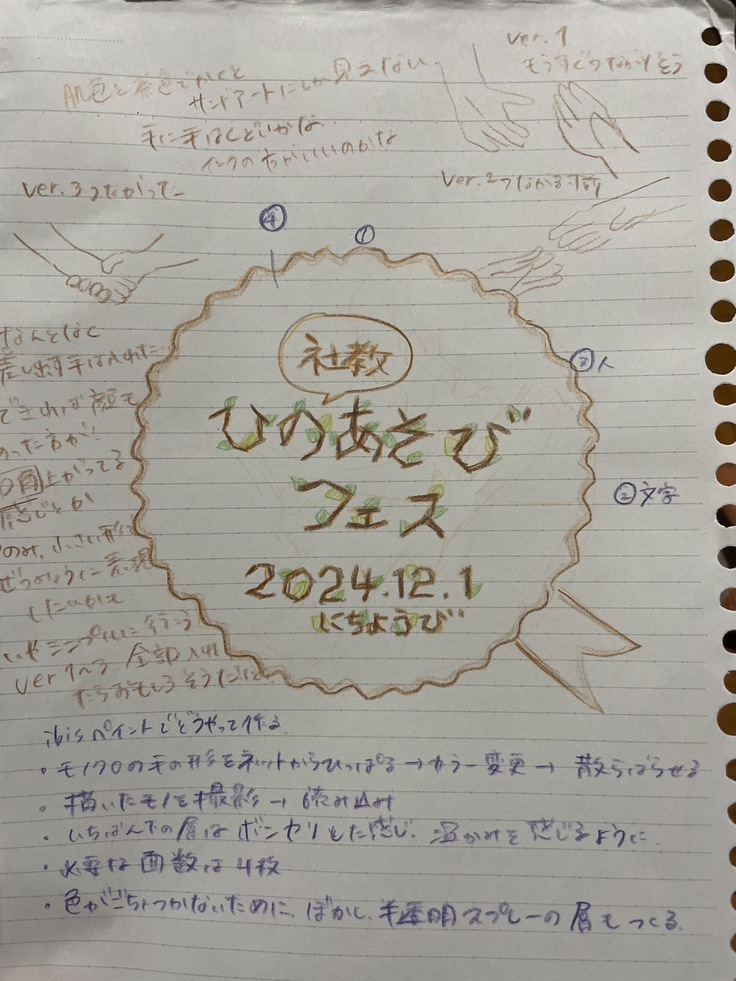 ver.1
もうすぐつながりそう
肌色と茶色でかくと
サンドアートにしか見えない
手に手はくどいかな
インクの方がいいのかな
ver.2つながる寸前
ver.3つながった
④
①
なんとなく
差し出す手は入れた
できれば顔も
かった方が!
口角上がってる
感じとか
のみ、小さい形
ぜつみょうに表現
したいかも
いやシンプルにそう
ver1~3 全部入れ
たらおもしろそうだ
社教
ひのあそび
フェス
2024.12.1
にちようび
③人
②文字
ibisペイントでどうやって作る
・モノクロの手の形をネットからひっぱる→カラー変更→ 散らばらせる
・描いたモノを撮影→ 読み込み
・いちばん下の層はボンヤリとした感じ. 温かみを感じるように
・必要な面数は4枚
・色がごちゃつかないために、ぼかし、半透明スプレーの層もつくる.